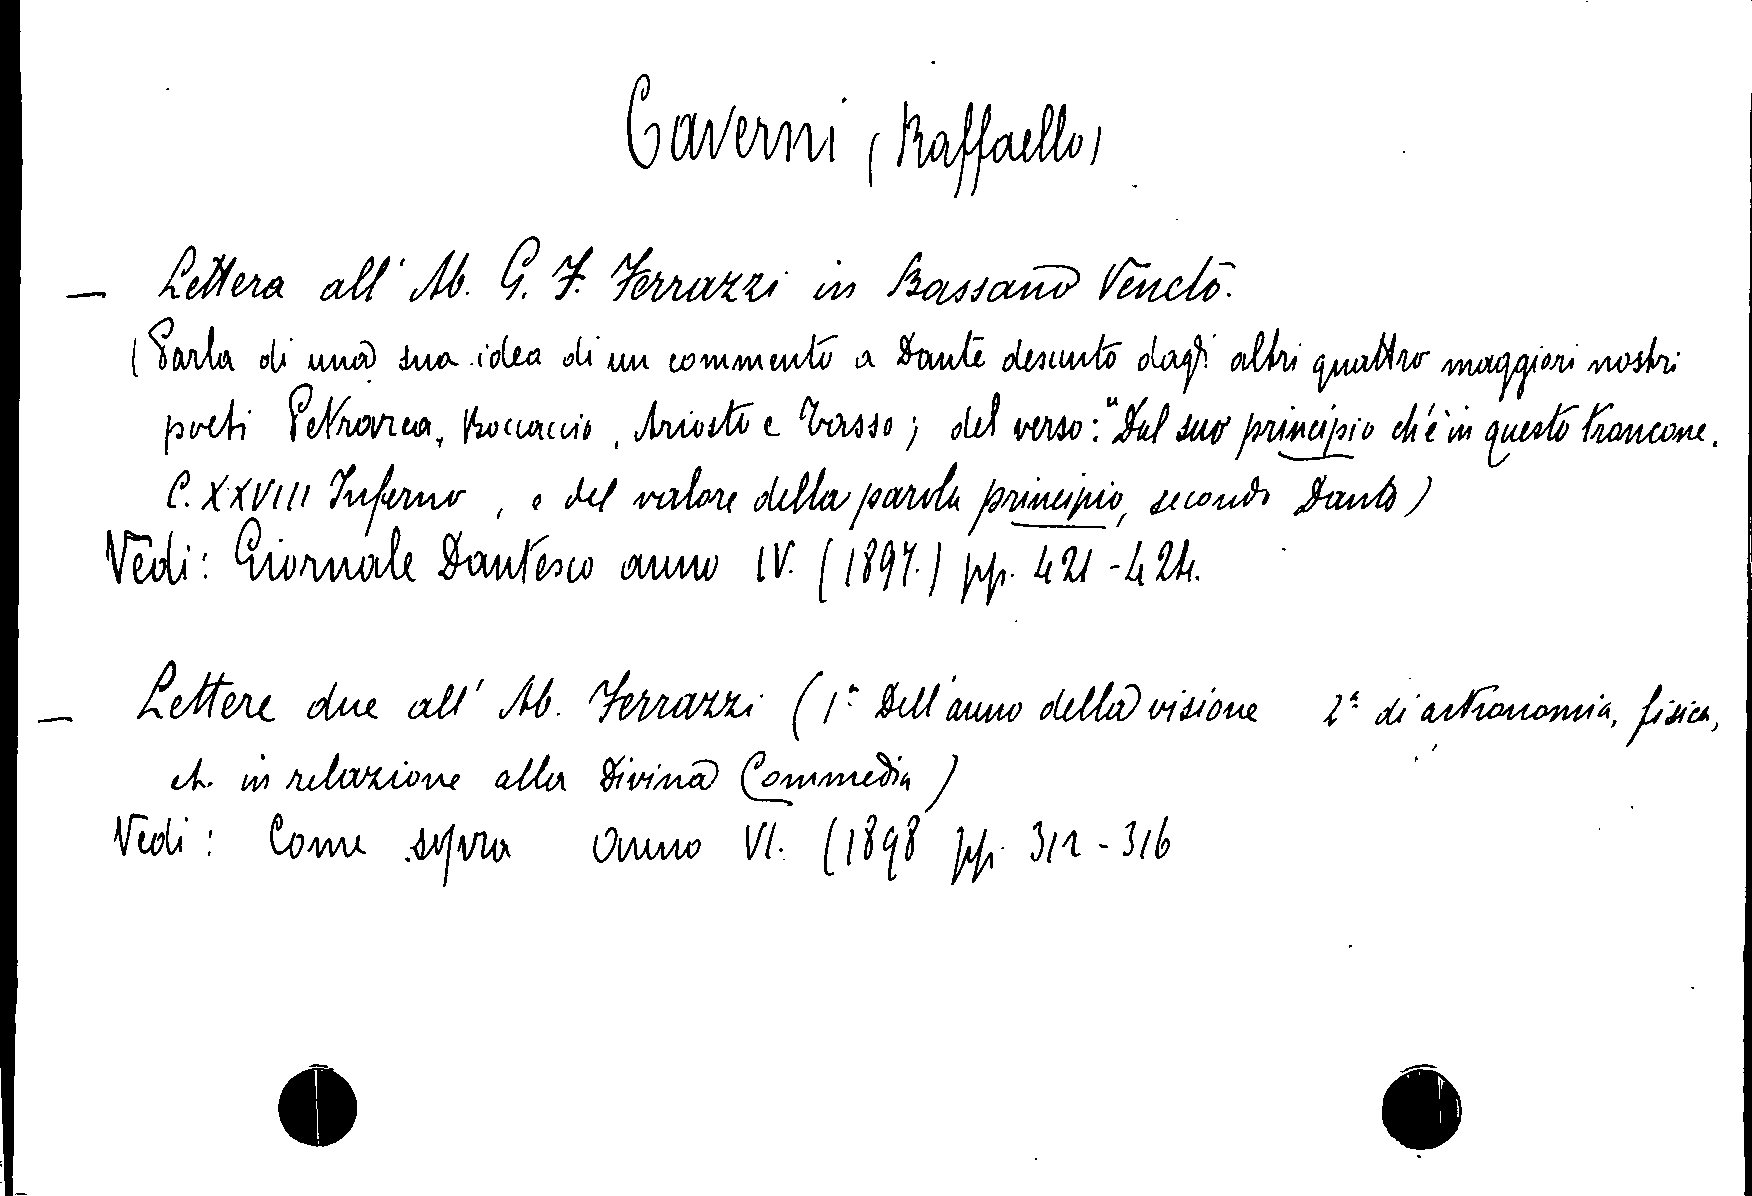 Caverni (Raffaello)
— Lettera all' Ab. G. F. Ferrazzi in Bassano Veneto.
(Parla di una sua idea di un commento a Dante desunto dagli altri quattro maggiori nostri
poeti Petrarca, Boccaccio, Ariosto e Tasso; del verso: "Dal suo principio ch'è in questo troncone.
C. XXVIII Inferno, e del valore della parola principio, secondo Dante)
Vedi: Giornale Dantesco anno IV. (1897.) pp. 421-424.
— Lettere due all' Ab. Ferrazzi (1ª Dell'anno della visione 2ª di astronomia, fisica,
etc. in relazione alla Divina Commedia)
Vedi: Come sopra anno VI. (1898 pp. 312-316